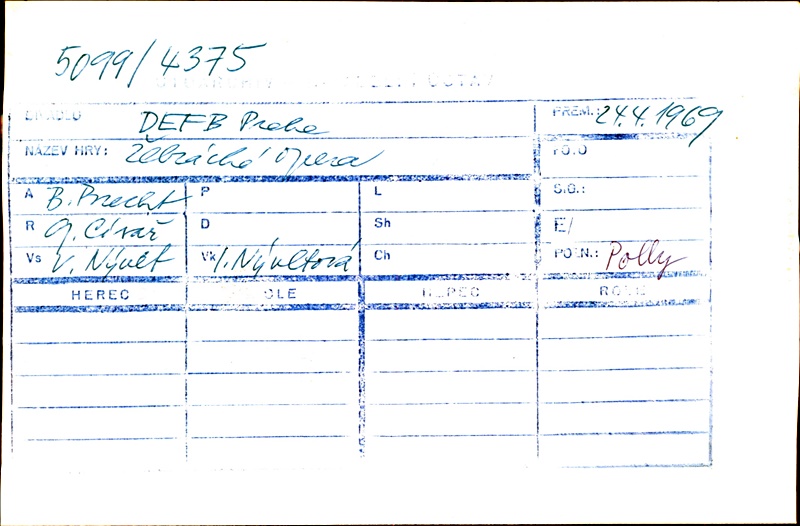 5099/4375
DIVADLO DEFB Praha PREM.: 24.4.1969
NÁZEV HRY: Žebrácká opera FOTO
A B. Brecht P L S.G.:
R Sh E/
D
Vs V. Nývlt Vk I. Nývltová Ch POZN.: Polly
HEREC ROLE HEREC ROLE